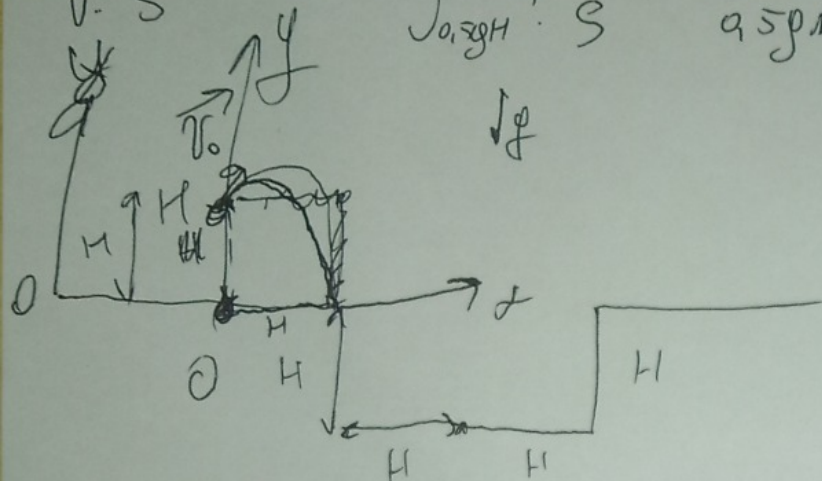 √0,5gH : S
0,5g
y
V₀
↓g
H
H
O
H
x
O
H
H
H
H